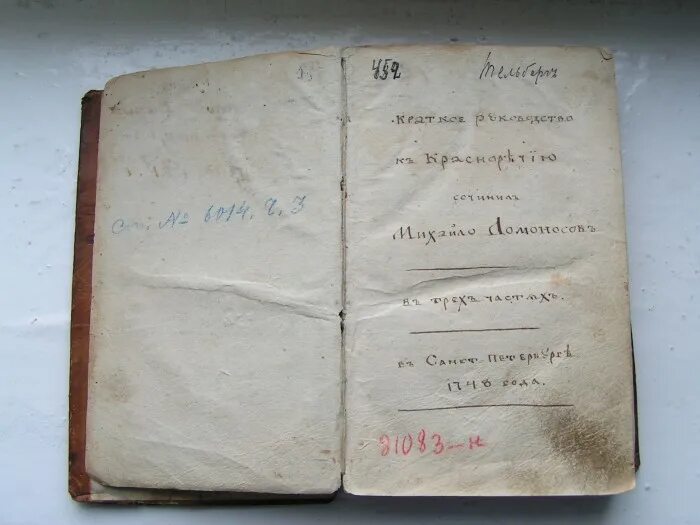 См. № 6014. г. 3
452
Тельбергъ
Краткое руководство
къ Краснорѣчїю
сочинилъ
Михайло Ломоносовъ
въ трехъ частяхъ.
въ Санктъ Петербургѣ
1748 года.
21083-н